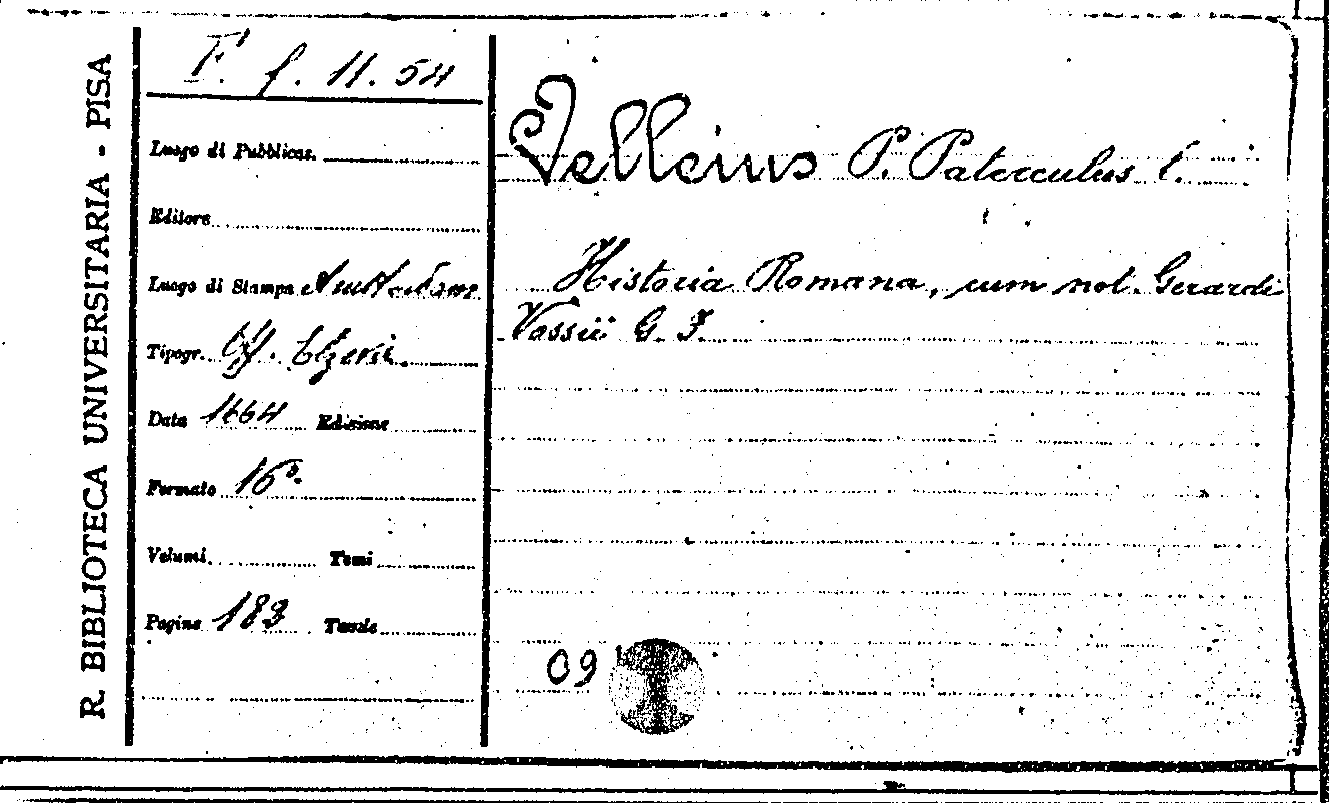 R. BIBLIOTECA UNIVERSITARIA - PISA
F. f. 11. 54
Luogo di Pubblicaz.
Editore
Luogo di Stampa Amstelodam
Tipogr. Off. Elzevir.
Data 1664 Edizione
Formato 16°.
Volumi Tomi
Pagine 183 Tavole
Velleius P. Paterculus C.
Historia Romana, cum not. Gerardi
Vossii G. F.
09